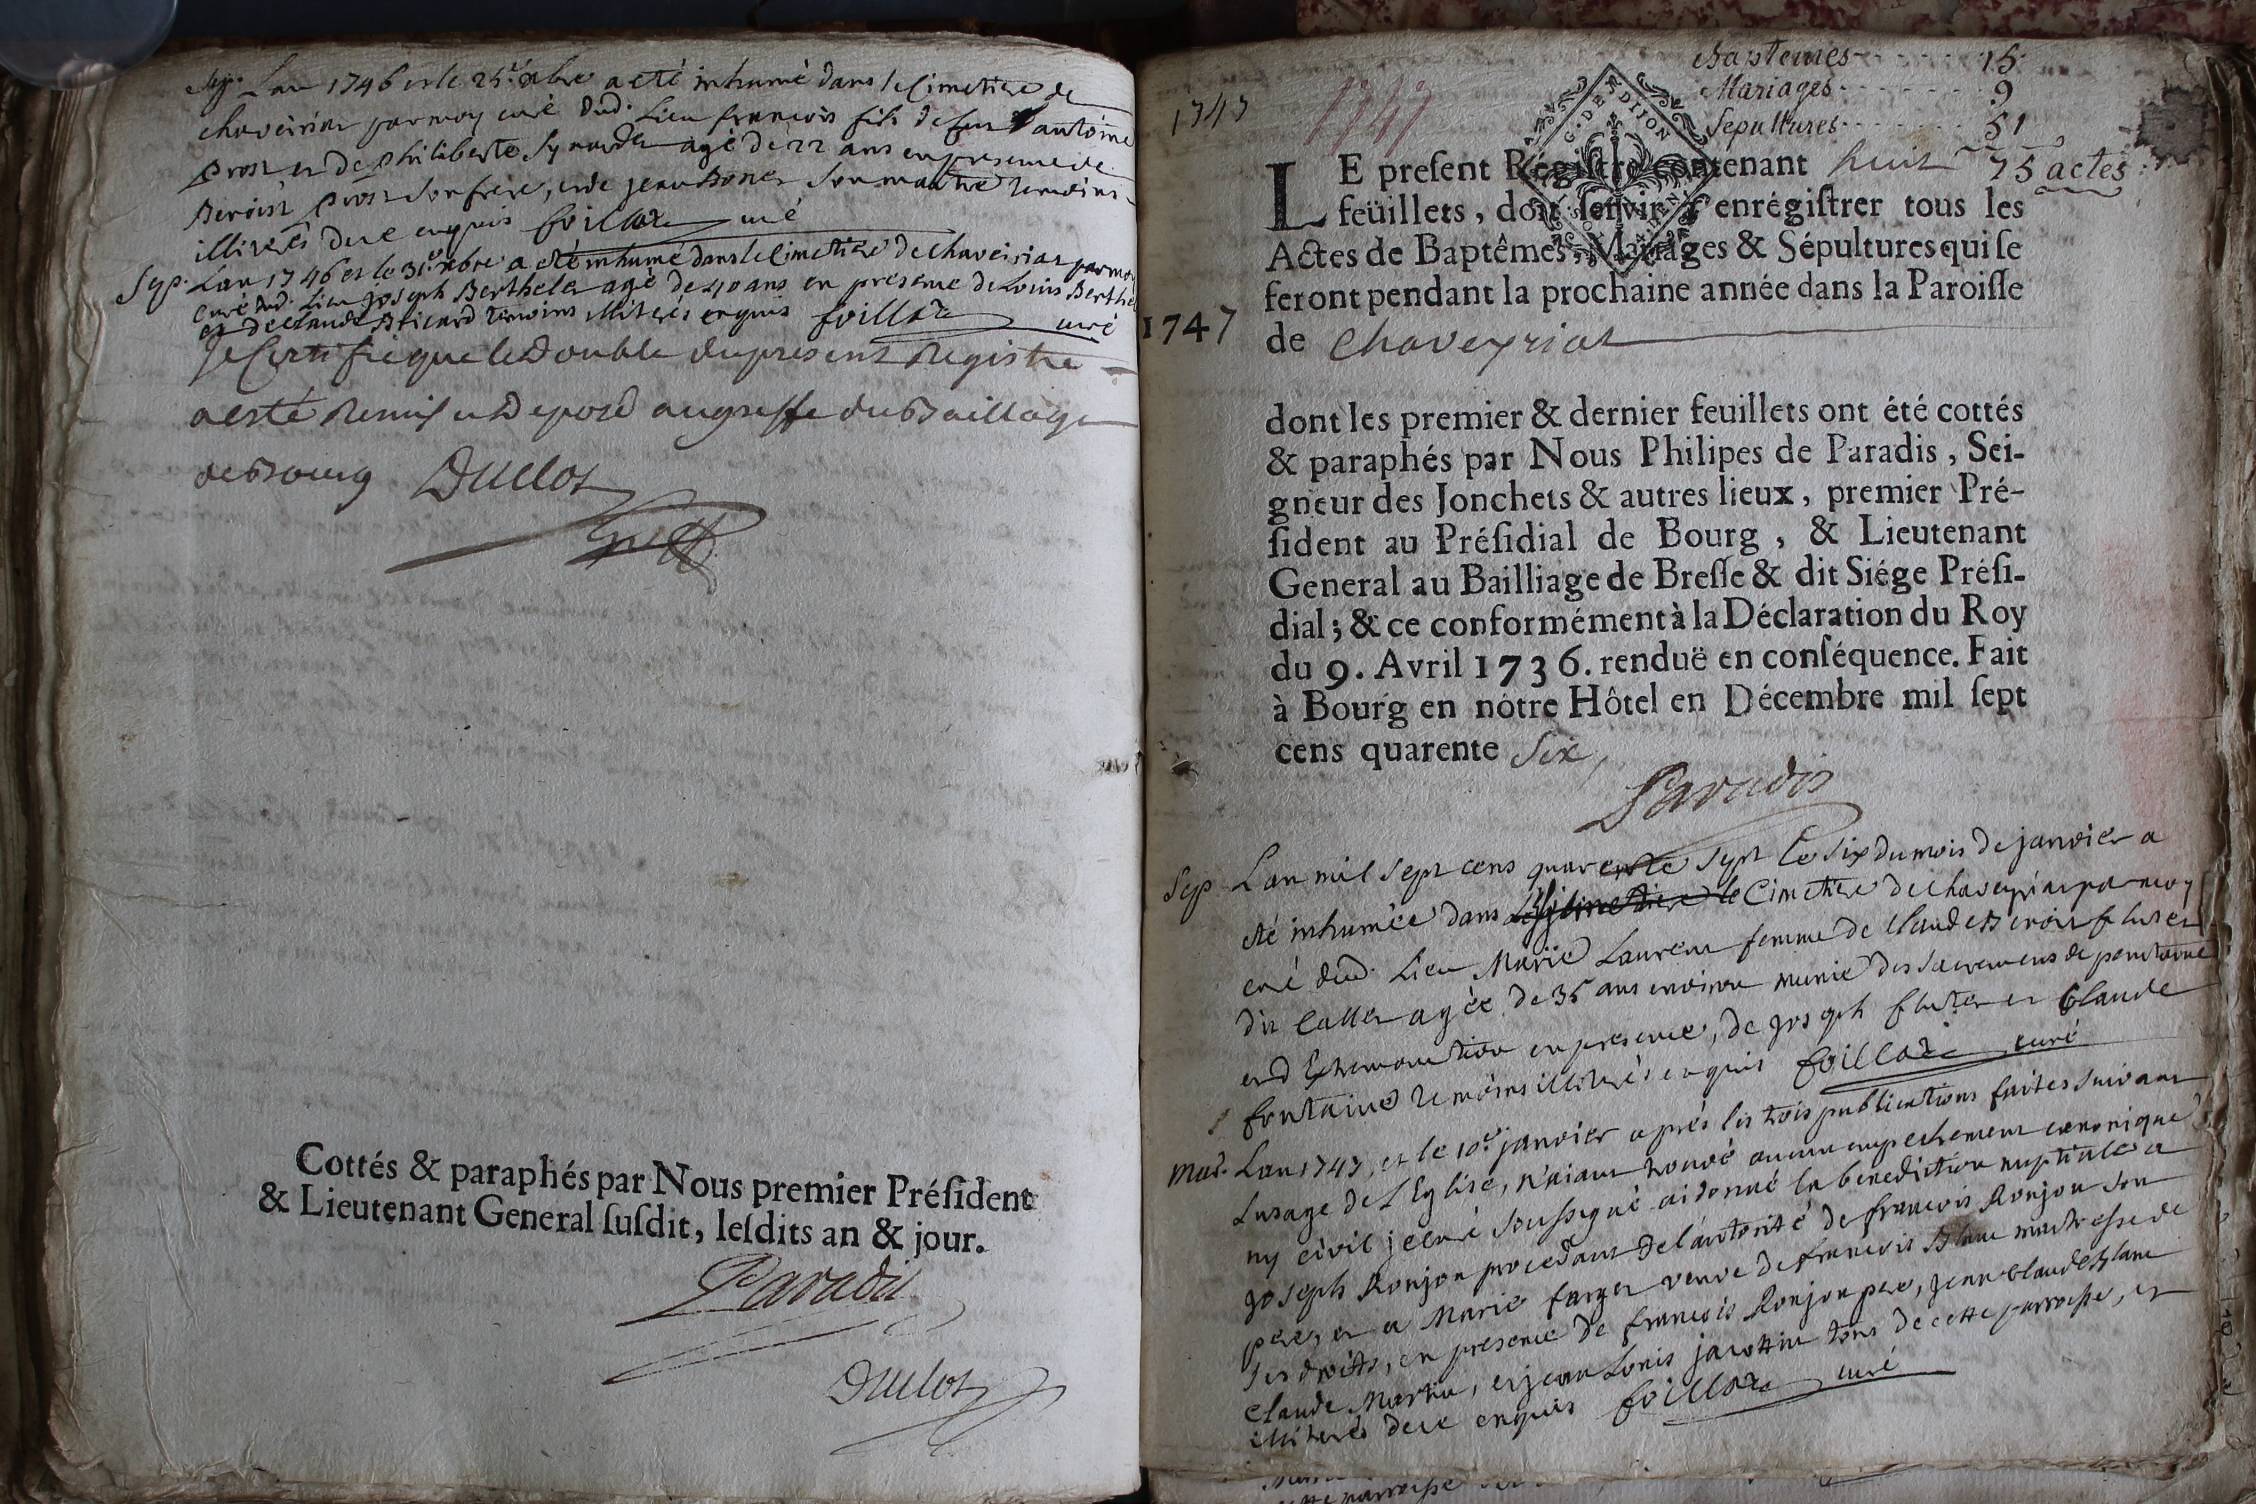 Sep. Lan 1746 et le 25.e xbre a eté inhumé dans le Cimetiere de
chaveiriat par moy curé dud. Lieu françois fils de feu antoine
prost et de philiberte agé de 22 ans en presence de
Benoist prost son frere, et de jean Bones son maitre temoins
illiterés de ce enquis foillar curé
Sep. Lan 1746 et le 31.e xbre a eté inhumé dans le Cimetiere de chaveiriat par moy
curé dud. Lieu joseph Berthelet agé de 40 ans en presence de Louis Berthel
et de Claude Bricard temoins illiterés enquis foillar curé
Je Certifie que le Double du present Registre
a esté Remis et Deposé au greffe du Baillage
de Bourg Duclos
Cottés & paraphés par Nous premier Préſident
& Lieutenant General ſuſdit, leſdits an & jour.
Paradis
Duclos
Baptemes 15
1747 1747 Mariages 9
Sepultures 51
G. DE DIJON
LE preſent Régiſtre contenant huit 75 actes
feüillets, doit ſervir à enrégiſtrer tous les
Actes de Baptêmes, Mariages & Sépultures qui ſe
feront pendant la prochaine année dans la Paroiſſe
1747 de Chaveyriat
dont les premier & dernier feuillets ont été cottés
& paraphés par Nous Philipes de Paradis, Sei-
gneur des Jonchets & autres lieux, premier Pré-
ſident au Préſidial de Bourg, & Lieutenant
General au Bailliage de Breſſe & dit Siége Préſi-
dial; & ce conformément à la Déclaration du Roy
du 9. Avril 1736. renduë en conſéquence. Fait
à Bourg en nôtre Hôtel en Décembre mil ſept
cens quarente Six,
Paradis
Sep Lan mil sept cens quarente sept le six du mois de janvier a
eté inhumée dans le Cimetiere de chaveyriat par moy
curé dud. Lieu Marie Laurent femme de Claude Benoist fluter
dit Caller agée de 35 ans environ munie des sacremens de penitence
et d Extremonction en presence, de joseph fluter et Claude
fontaine temoins illiterés enquis foillar curé
Mar. Lan 1747, et le 10.e janvier aprés les trois publications faites suivant
Lusage de L'Eglise, n'aiant trouvé aucun empechement canonique
ny civil je curé soussigné ai donné la benediction nuptiale a
joseph Ronjon procedant de l'autorité de françois Ronjon son
pere, et a Marie farger veuve de françois Blanc maitresse de
ses droits, en presence de françois Ronjon pere, jean Claude Blanc
Claude Martin, et jean Louis jacottin tous de cette parroisse, et
illiterés de ce enquis foillar curé